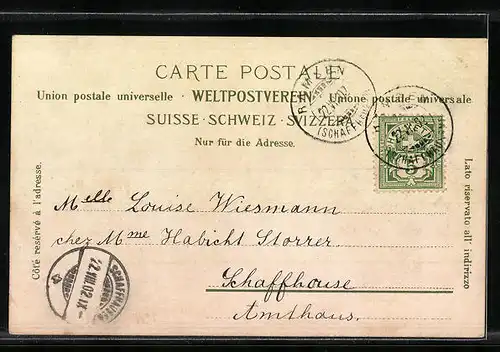 CARTE POSTALE
Union postale universelle WELTPOSTVEREIN Unione postale universale
SUISSE · SCHWEIZ · SVIZZERA
Nur für die Adresse.
Côté reservé à l'adresse.
Lato riservato all' indirizzo
RAMSEN
(SCHAFFH
5
Melle Louise Wiesmann
chez Mme Habicht Storrer
Schaffhouse
Amthaus.
SCHAFFHAUSEN
22.VIII.02.IX-